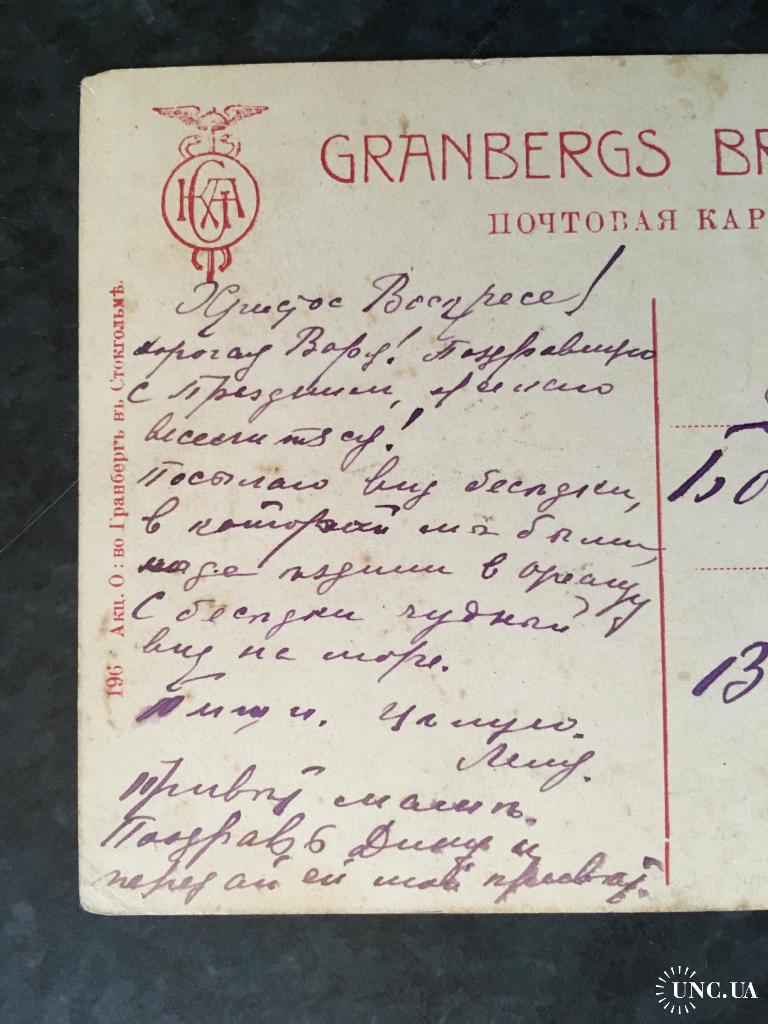 GRANBERGS BR
ПОЧТОВАЯ КАР
196 Акц. О: во Гранбергъ въ Стокгольмѣ.
Христос Воскресе!
дорогая Варя! Поздравляю
с Праздником, желаю
веселиться!
Посылаю вид беседки,
в которой мы были,
когда ездили в Ореанду
С беседки чудный
вид на море.
Пиши. Целую.
Леля.
Привет маме.
Поздравь Дину и
передай ей мой привет.
Бо
В
UNC.UA